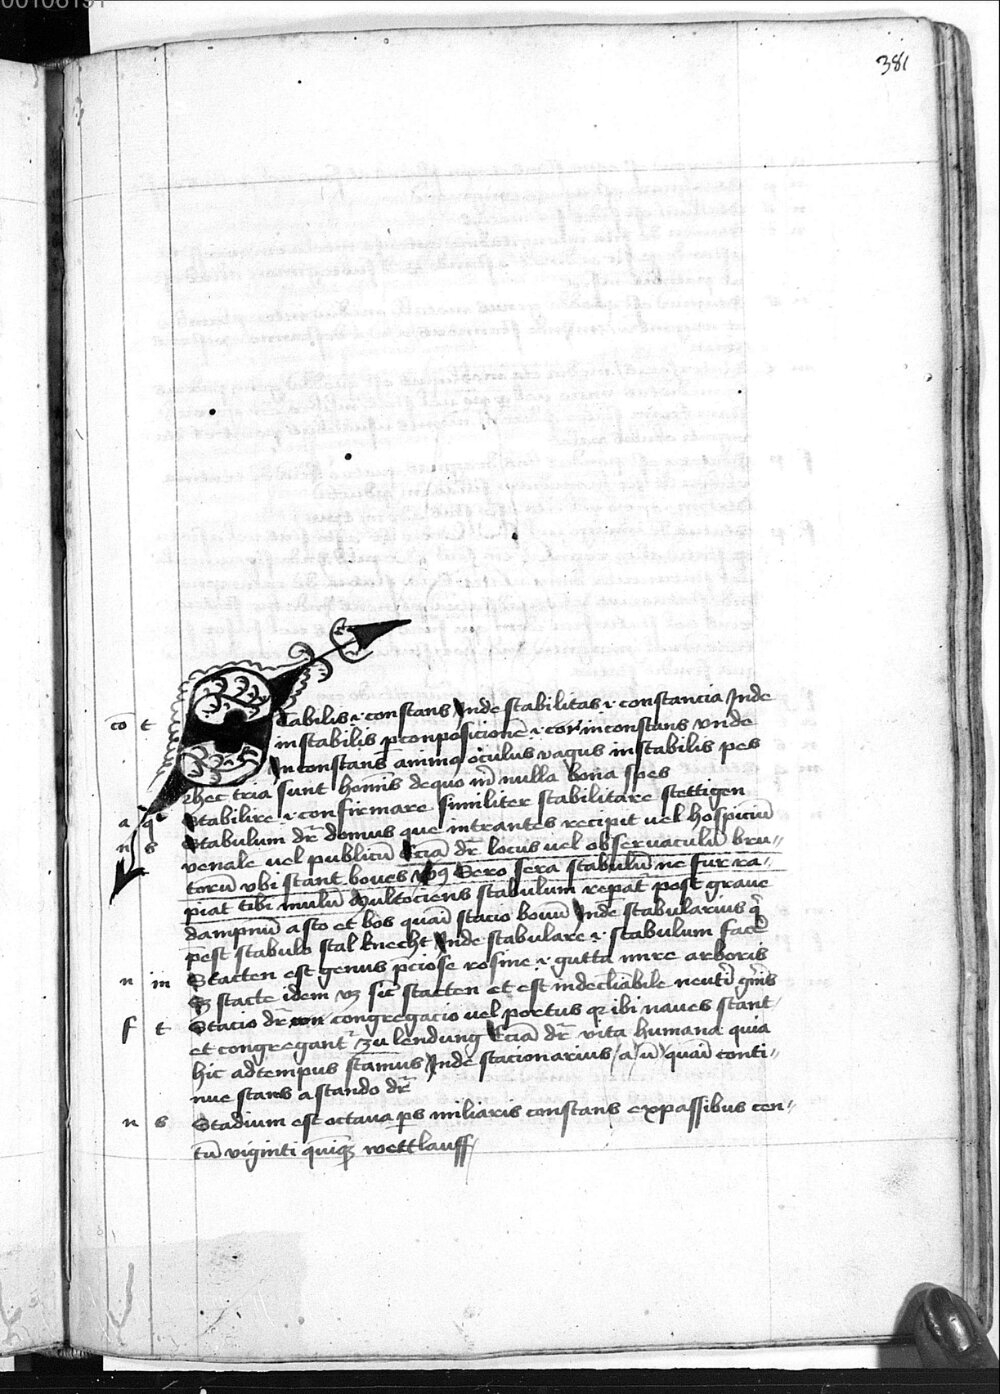 00106191
381
co t Stabilis .i. constans Inde stabilitas .i. constancia Inde
instabilis p conposicionē .i. inconstans vnde
Inconstans animꝰ oculus vagus instabilis pes
hec tria sunt homīs de quo m̄ nulla bona spes
a qͥ Stabilire .i. confirmare similiter stabilitare stettigen
n s Stabulum dr̄ domus que intrantes recipit vel hospiciū
venale vel publicū Eciā dr̄ locus vel obseruaculū bru//
torū vbi stant boues Sero sera stabulū ne fur ra//
piat tibi mulū Multociens stabulum reparāt post graue
dampnū a sto et bos quāi stacio bouū Inde stabularius qͥ
p̄est stabulo stal knecht Inde stabulare .i. stabulum facē
n in Stacten est genus p̄ciose rosine .i. gutta mire arboris
Sꝫ stacte idem vꝫ sic stacten et est indecliābile neutī gn̄is
f t Stacio dr̄ congregacio vel portus qꝛ ibi naues stant
et congregant᷑ zu lendung Eciā dr̄ vita humana quia
hic ad tempus stamus Inde stacionarius /a/ ū/ quāi conti//
nue stans a stando dr̄
n s Stadium est octaua ꝑs miliaris constans ex passibus cen//
tū viginti quīqꝫ wettlauff